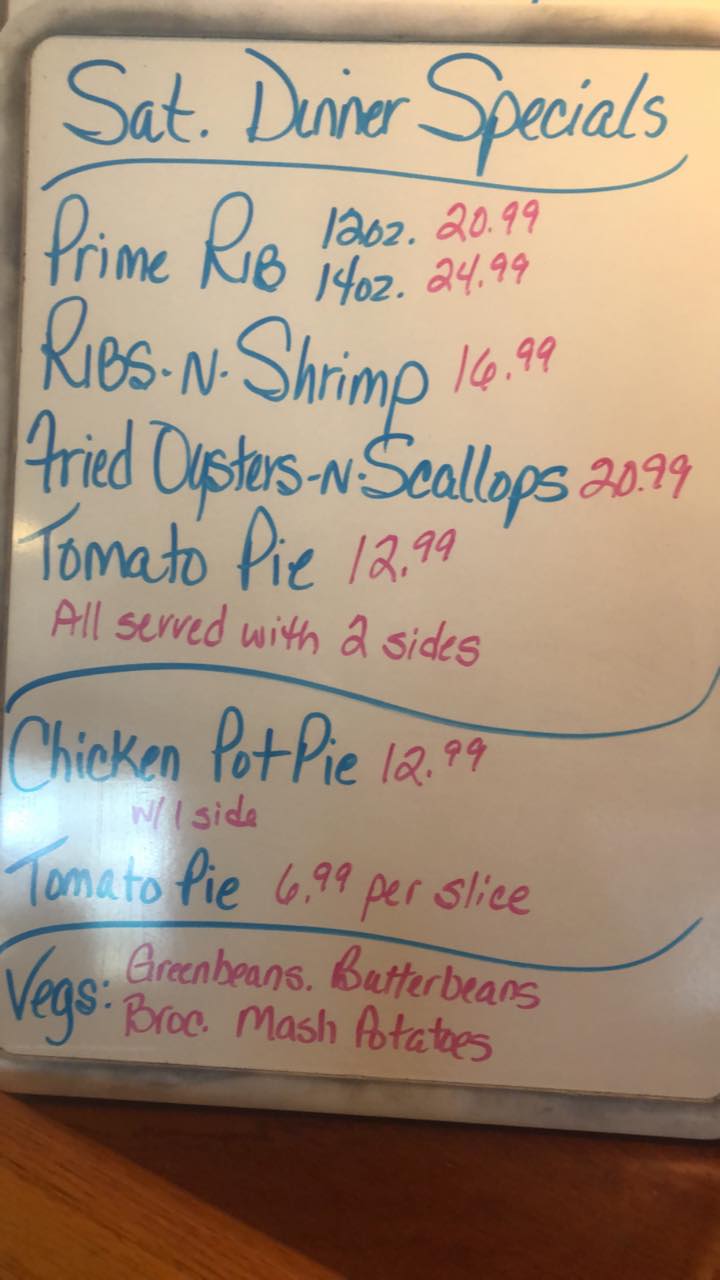 Sat. Dinner Specials
Prime Rib 12oz. 20.99
14oz. 24.99
Ribs-N-Shrimp 16.99
Fried Oysters-N-Scallops 20.99
Tomato Pie 12.99
All served with 2 sides
Chicken Pot Pie 12.99
w/ 1 side
Tomato Pie 6.99 per slice
Vegs: Greenbeans. Butterbeans
Broc. Mash Potatoes